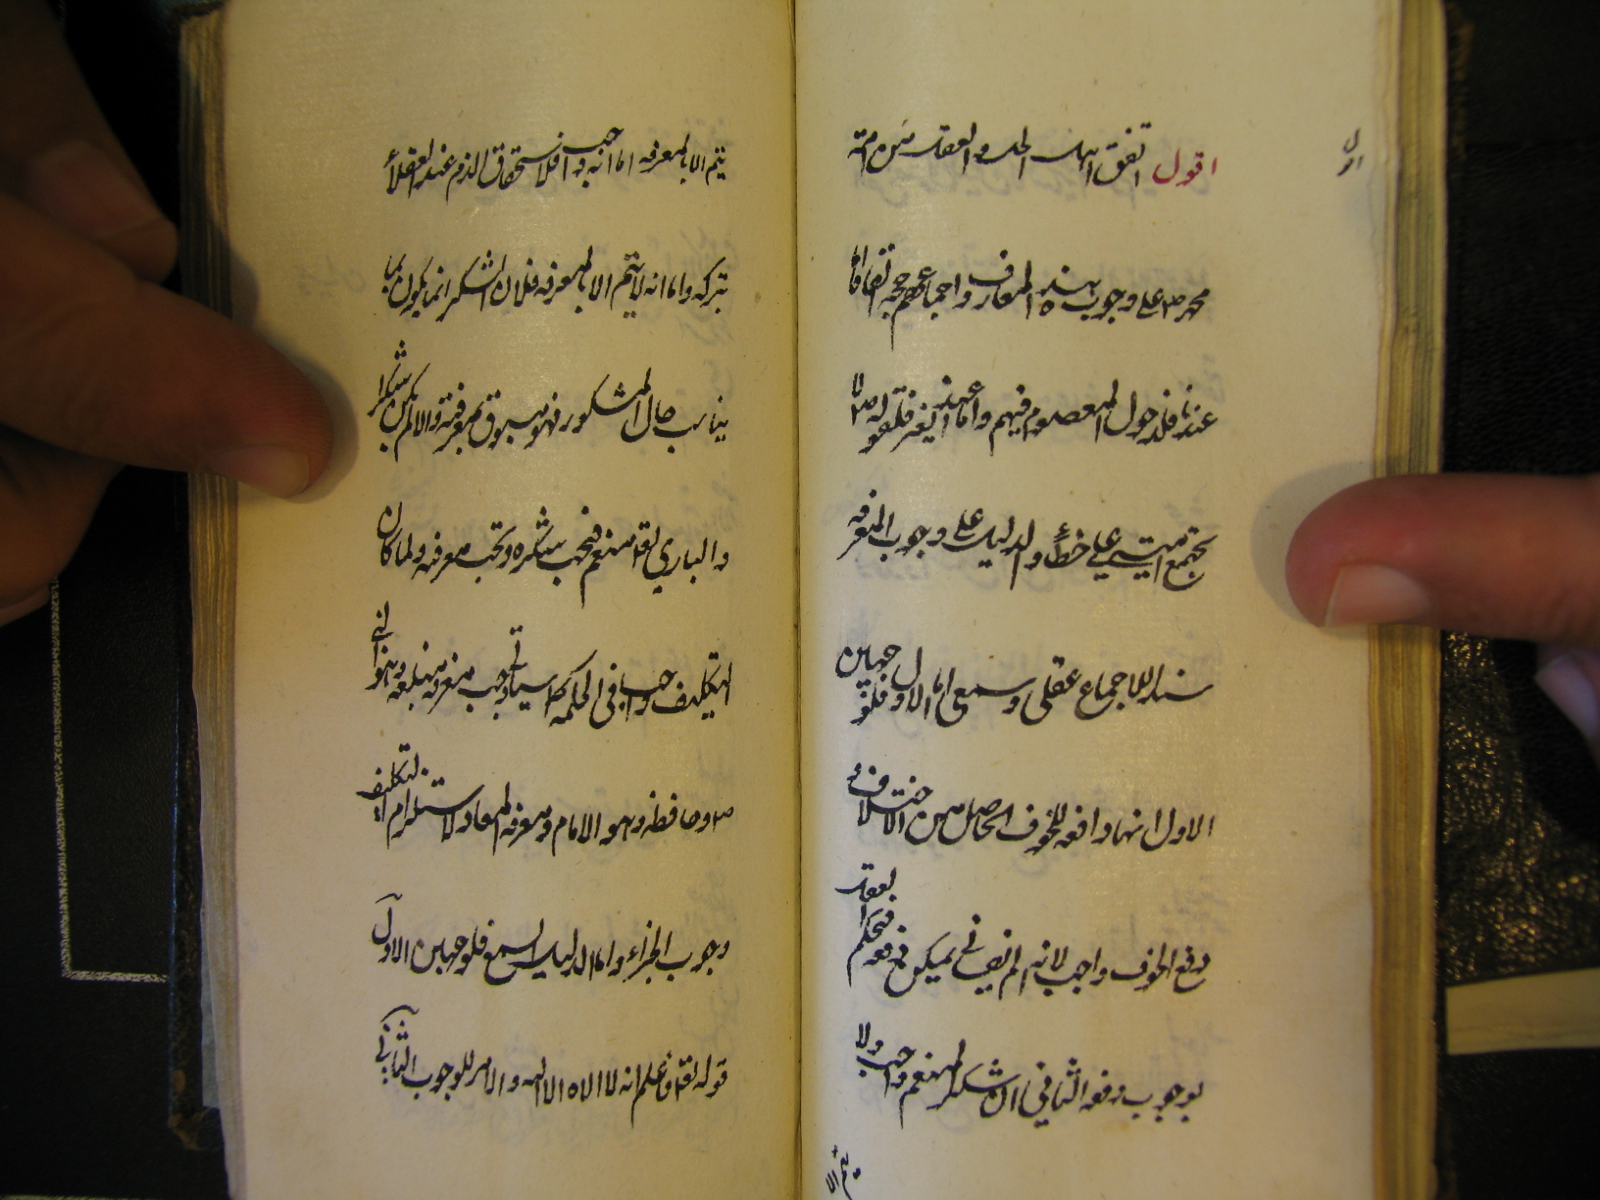 اقول اتفق اهل الحل والعقد من امة
محمد ص على وجوب هذه المعارف واجماعهم حجة اتفاقا اما
عندنا فلدخول المعصوم فيهم واما عند الغير فلقوله ص لا
تجتمع امتي على خطأ والدليل على وجوب المعرفة
سند الاجماع عقلي وسمعي اما الاول فلوجهين
الاول انها دافعة للخوف الحاصل من الاختلاف و
دفع الخوف واجب لانه الم نفساني يمكن دفعه فيحكم العقل
بوجوب دفعه الثاني ان شكر المنعم واجب ولا
يتم الا
يتم الا بالمعرفة اما انه واجب فلاستحقاق الذم عند العقلاء
بتركه واما انه لا يتم الا بالمعرفة فلان الشكر انما يكون بما
يناسب حال المشكور فهو مسبوق بمعرفته والا لم يكن شكرا
والباري تعالى منعم فيجب شكره وتجب معرفته ولما كان
التكليف واجبا في الحكمة كما سياتي وجب معرفة مبلغه وهو النبي
ص وحافظه وهو الامام ومعرفة المعاد لاستلزام التكليف
وجوب الجزاء واما الدليل السمعي فلوجهين الاول
قوله تعالى فاعلم انه لا اله الا الله والامر للوجوب الثاني